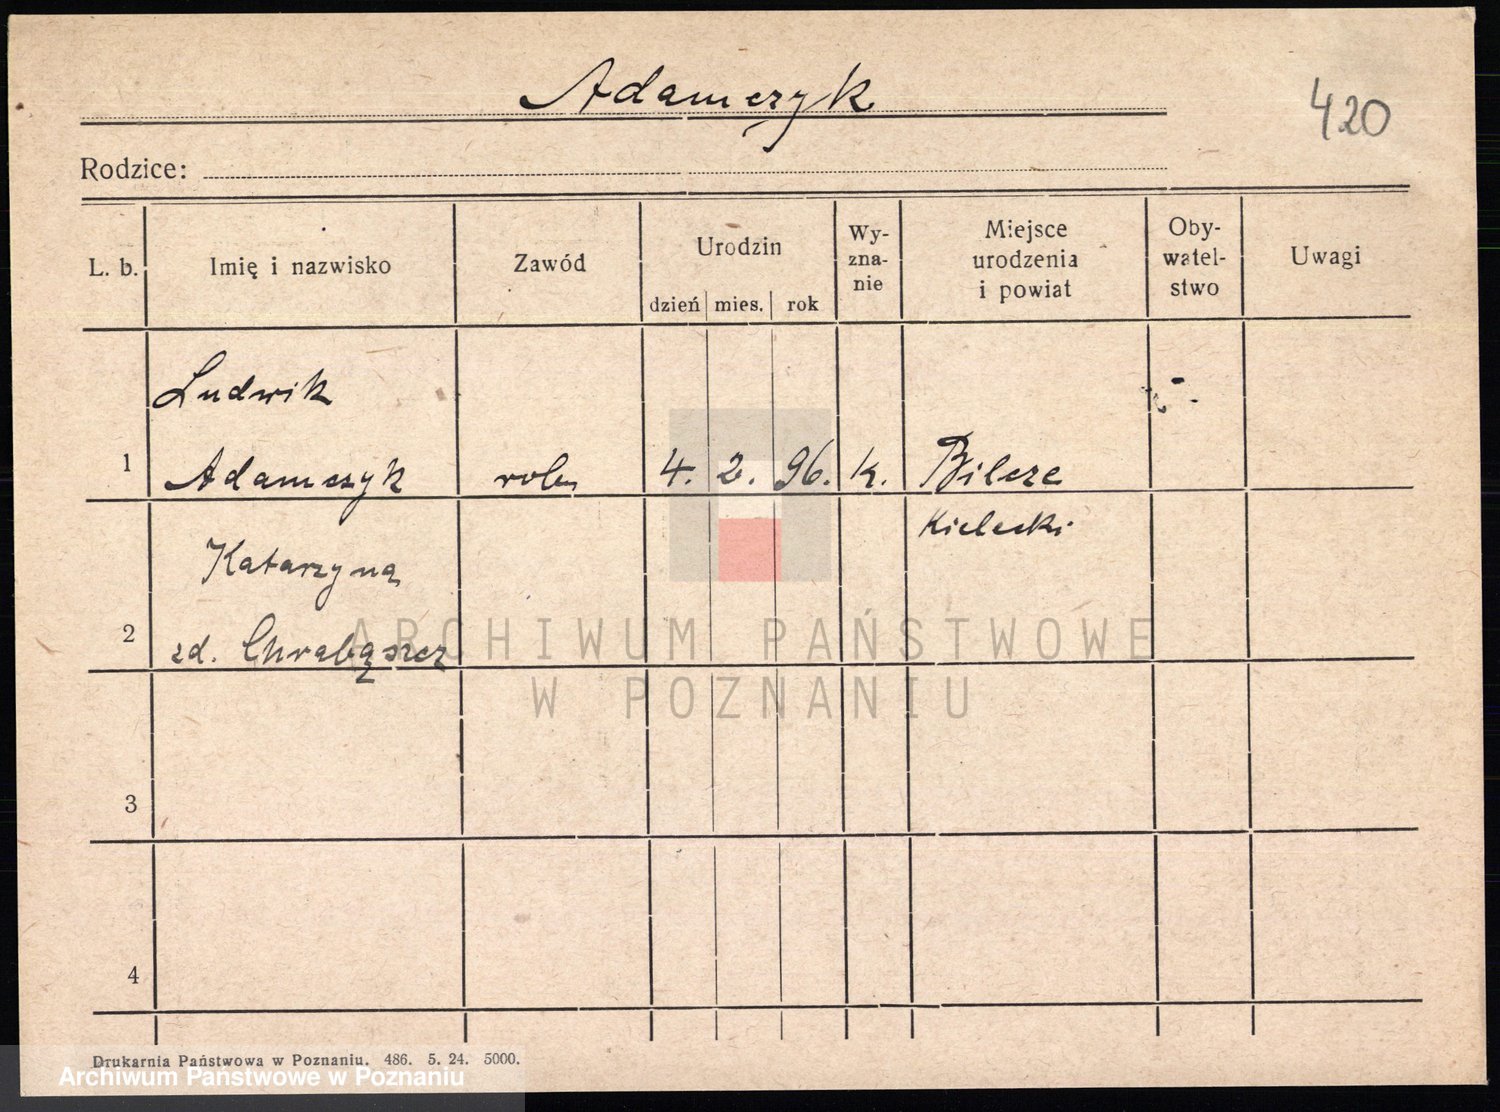 Adamczyk
420
Rodzice:
L. b.
Imię i nazwisko
Zawód
Urodzin
dzień mies. rok
Wy-
zna-
nie
Miejsce
urodzenia
i powiat
Oby-
watel-
stwo
Uwagi
Ludwik
1 Adamczyk roln 4. 2. 96. k. Bilcze
Kielecki
Katarzyna
2 zd. Chrabąszcz
ARCHIWUM PAŃSTWOWE
W POZNANIU
3
4
Drukarnia Państwowa w Poznaniu. 486. 5. 24. 5000.
Archiwum Państwowe w Poznaniu